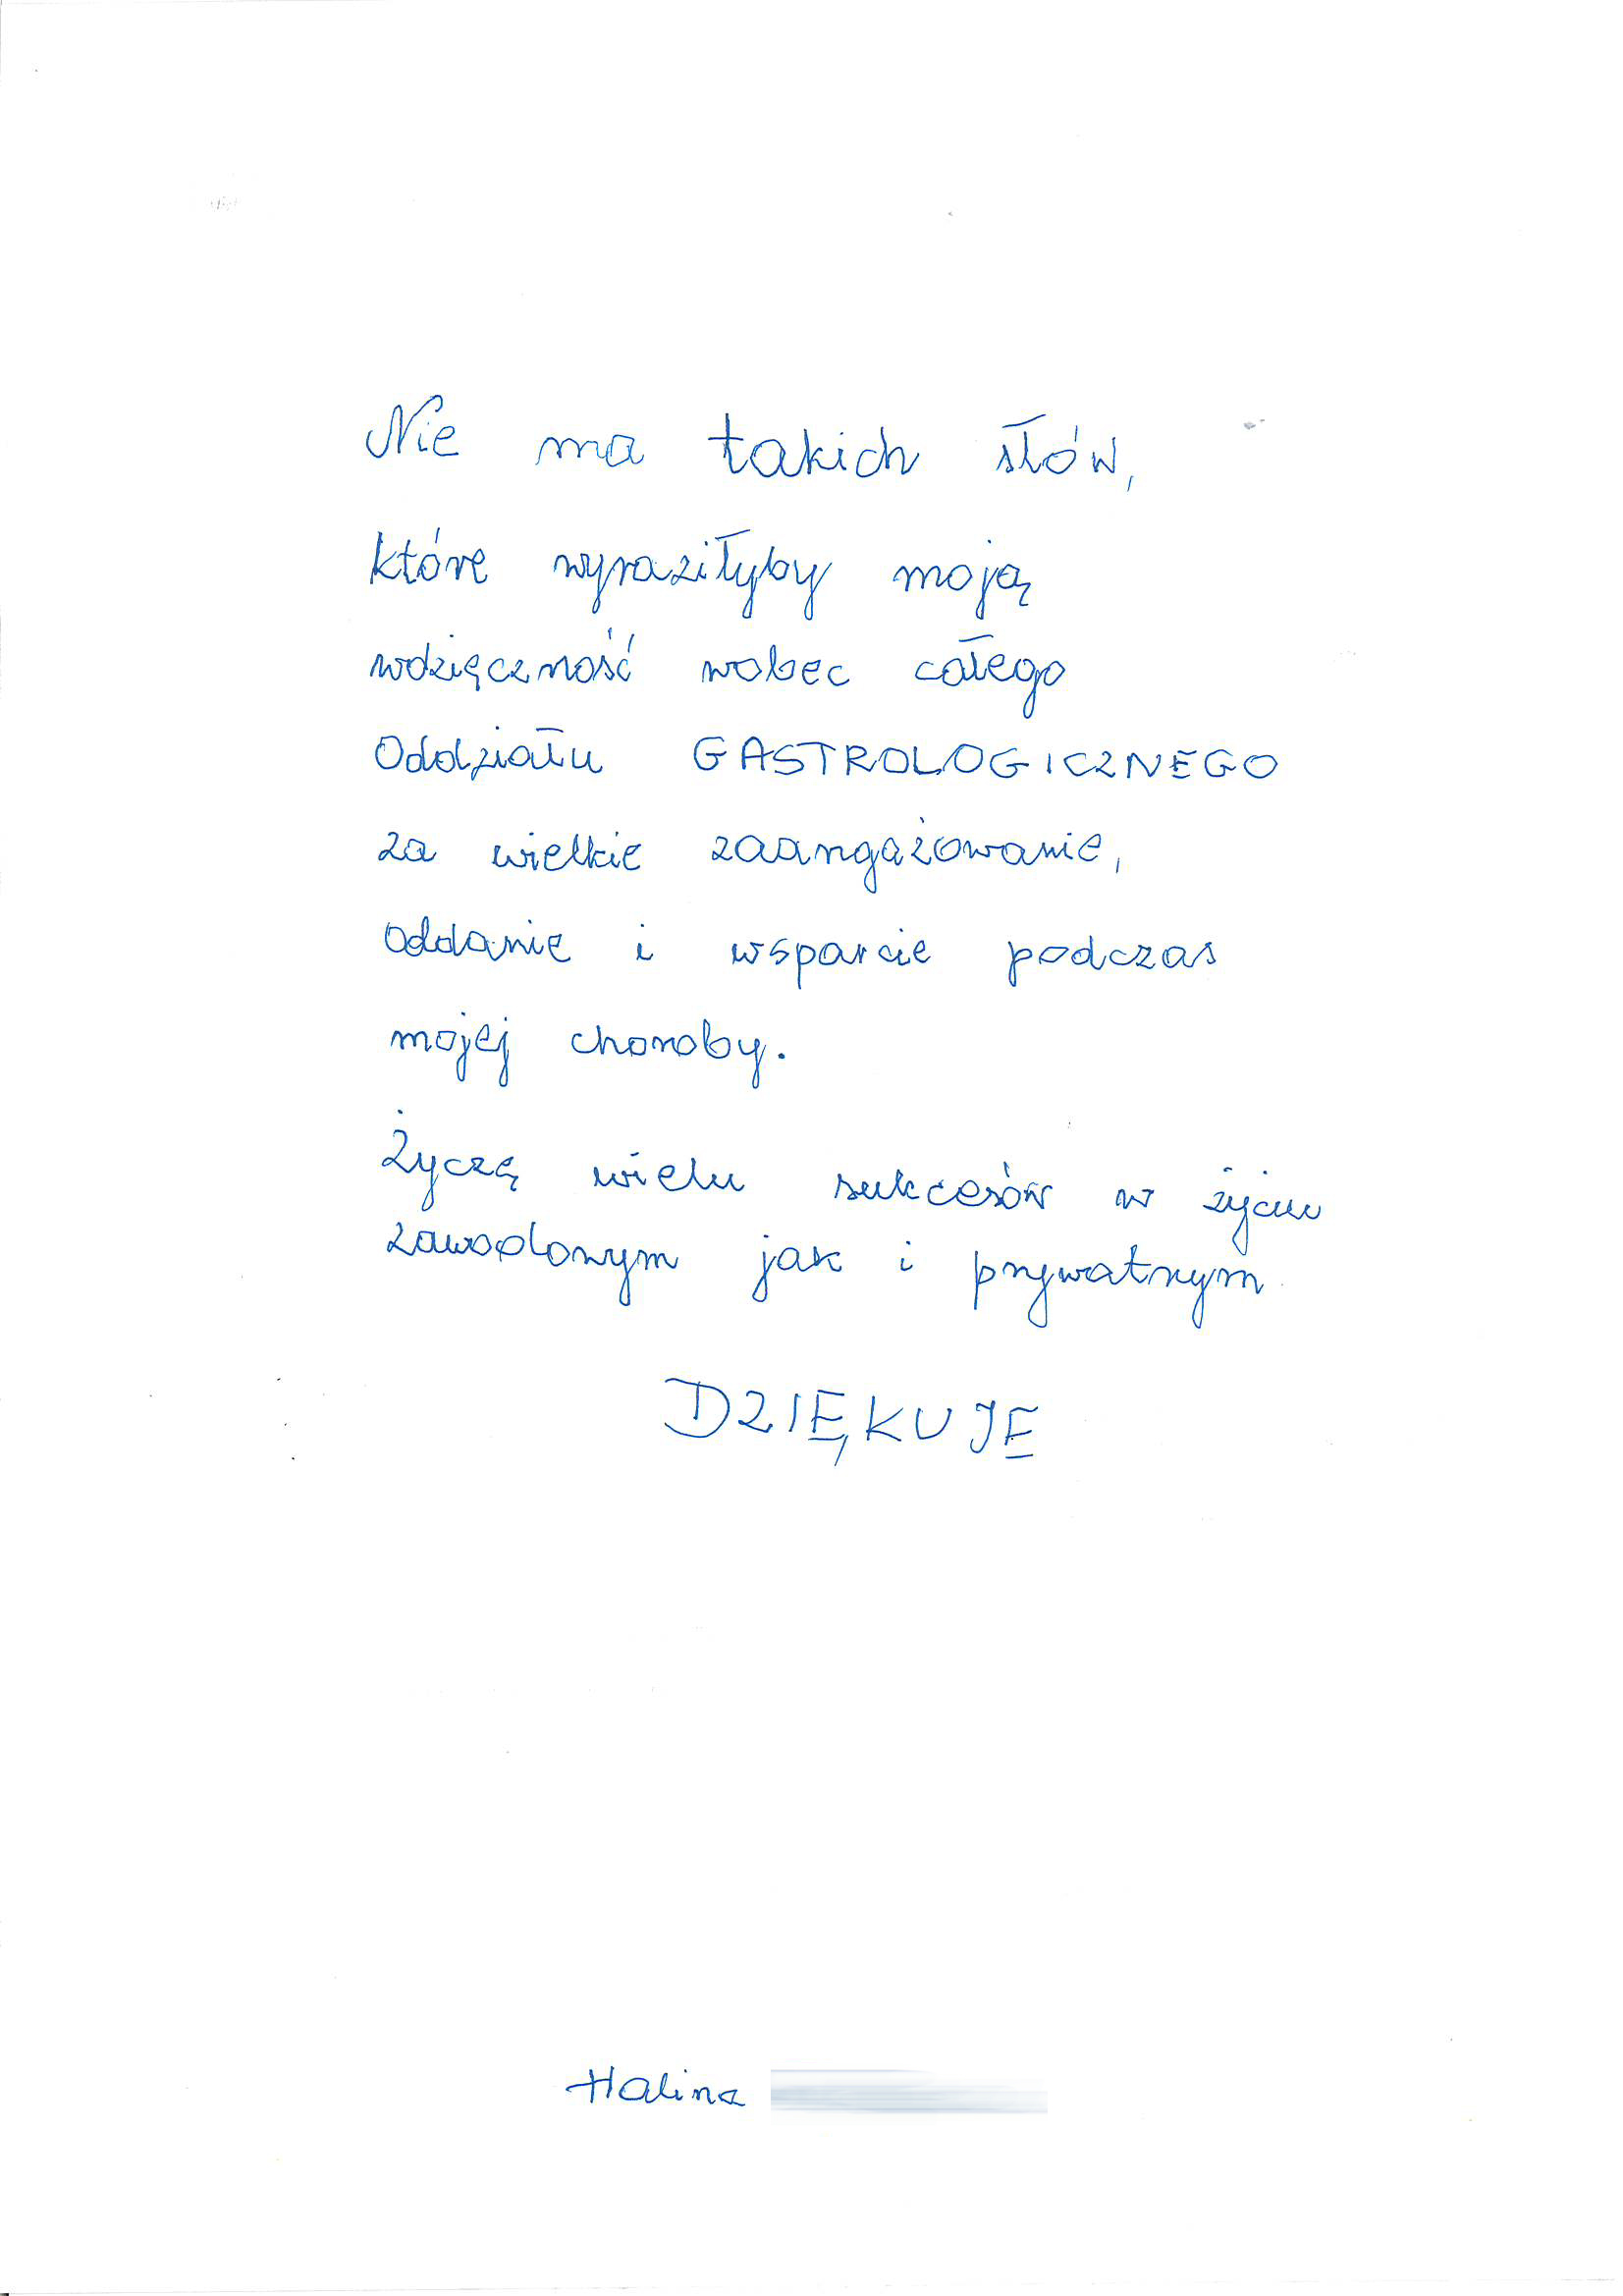 Nie ma takich słów,
które wyraziłyby moją
wdzięczność wobec całego
Oddziału GASTROLOGICZNEGO
za wielkie zaangażowanie,
Oddanie i wsparcie podczas
mojej choroby.
Życzę wielu sukcesów w życiu
zawodowym jak i prywatnym
DZIĘKUJE
Halina